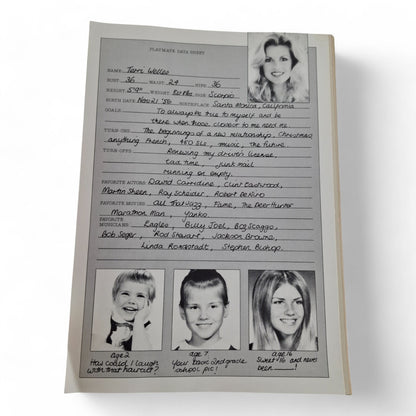 PLAYMATE DATA SHEET
NAME: Terri Welles
BUST: 36 WAIST: 24 HIPS: 36
HEIGHT: 5'9" WEIGHT: SIGN: Scorpio
BIRTH DATE: Nov. 21 '56 BIRTHPLACE: Santa Monica, California
GOALS: To always be true to myself and be
there when those closest to me need me.
TURN-ONS: The beginnings of a new relationship, Christmas,
anything French, 450 SLs, music, the future.
TURN-OFFS: Renewing my driver's license,
tax time, junk mail
running on empty.
FAVORITE ACTORS: David Carradine, Clint Eastwood,
Martin Sheen, Roy Scheider, Robert DeNiro
FAVORITE MOVIES: All That Jazz, Fame, The Deer Hunter
Marathon Man, Yanks.
FAVORITE
MUSICIANS: Eagles, Billy Joel, Boz Scaggs,
Bob Seger, Rod Stewart, Jackson Browne,
Linda Ronstadt, Stephen Bishop.
age 2
How could I laugh
with that haircut?
age 7
Your basic 2nd grade
school pic!
age 16
Sweet 16 and never
been ______!